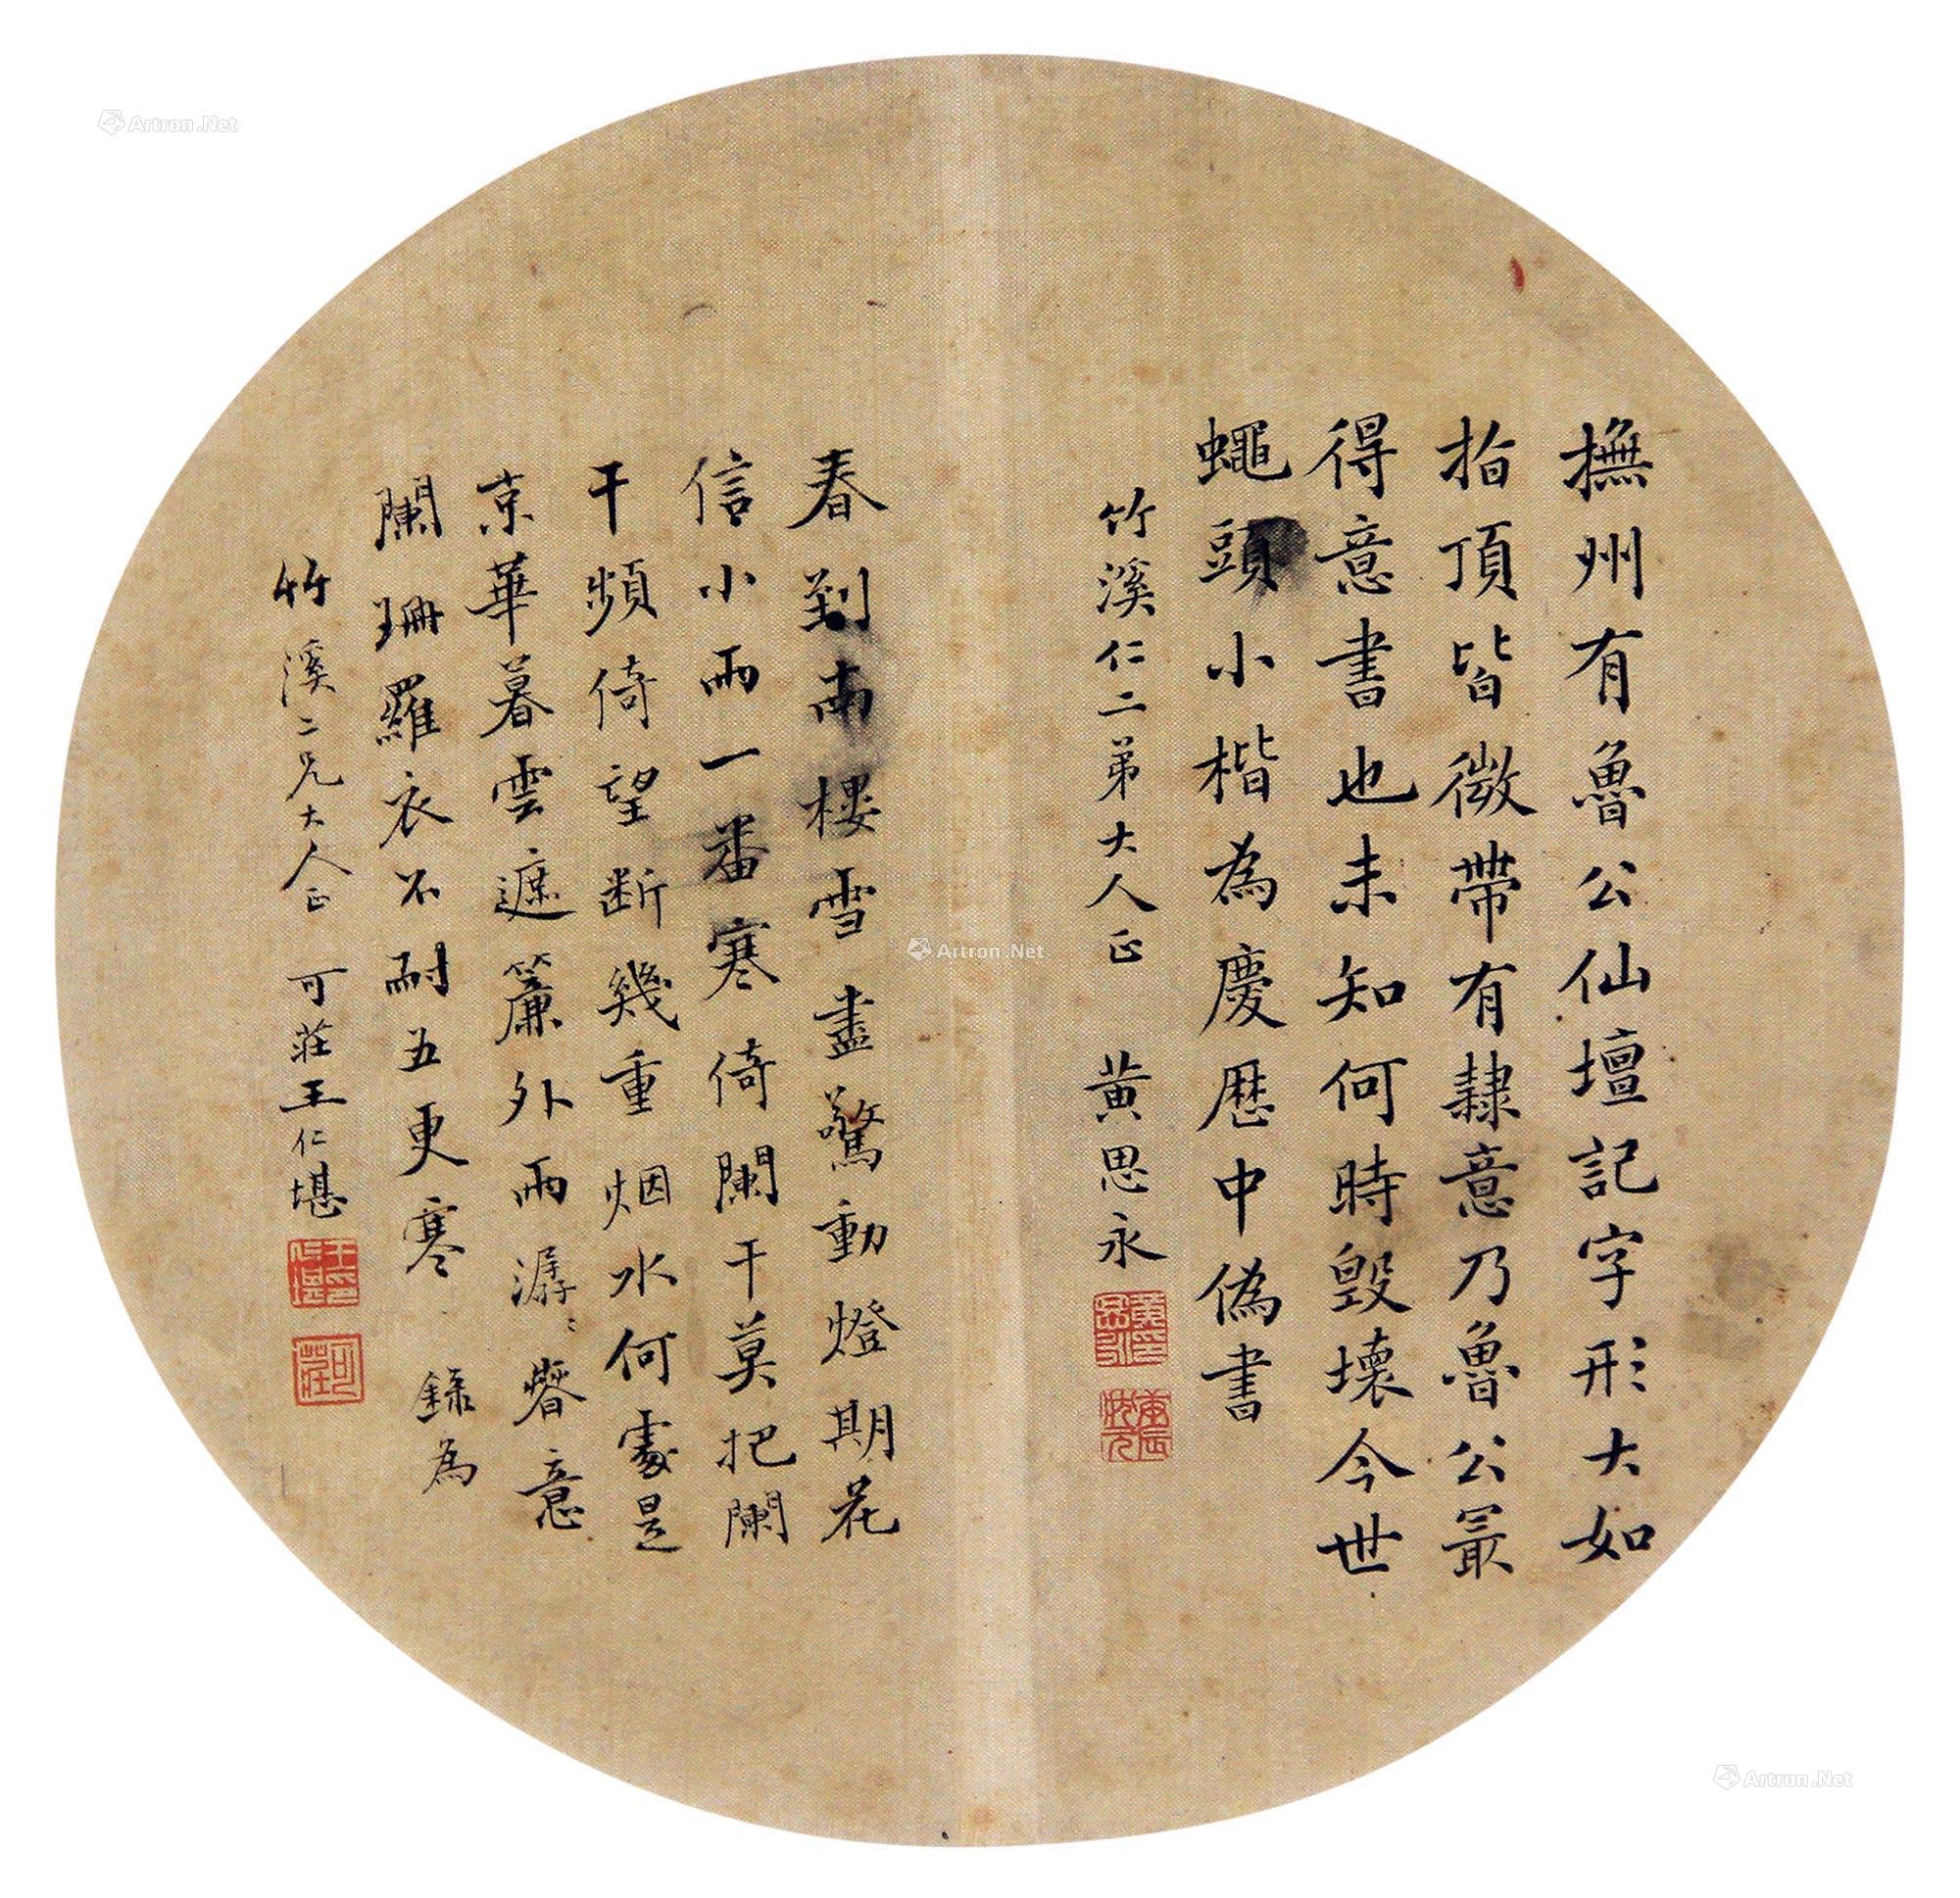 撫州有魯公仙壇記字形大如
指頂皆微帶有隸意乃魯公最
得意書也未知何時毀壞今世
蠅頭小楷為慶歷中偽書
竹溪仁二弟大人正 黄思永
黄思永印
庚辰狀元
春到南樓雪盡驚動燈期花
信小雨一番寒倚闌干莫把闌
干頻倚望斷幾重烟水何處是
京華暮雲遮簾外雨潺〻春意
闌珊羅衣不耐五更寒 録為
竹溪二兄大人正 可莊王仁堪
王印仁堪
可莊
Artron.Net
Artron.Net
Artron.Net